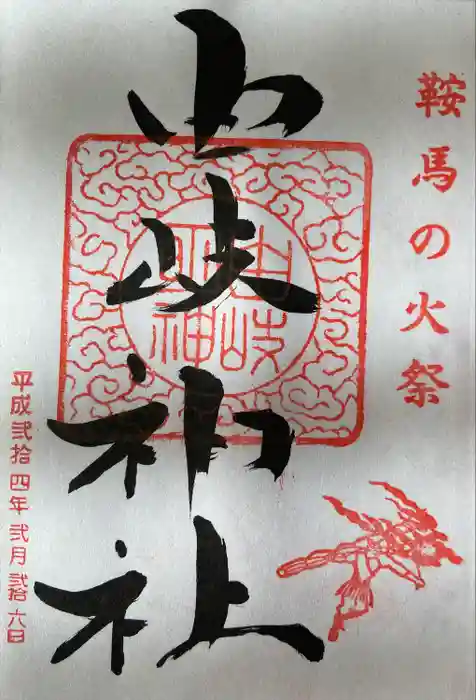 鞍馬の火祭
由岐神社
由岐神社
平成弐拾四年弐月弐拾六日